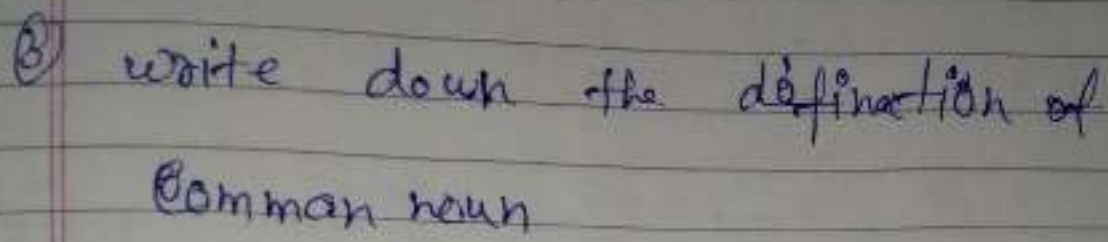 ③ write down the définection of
Comman noun